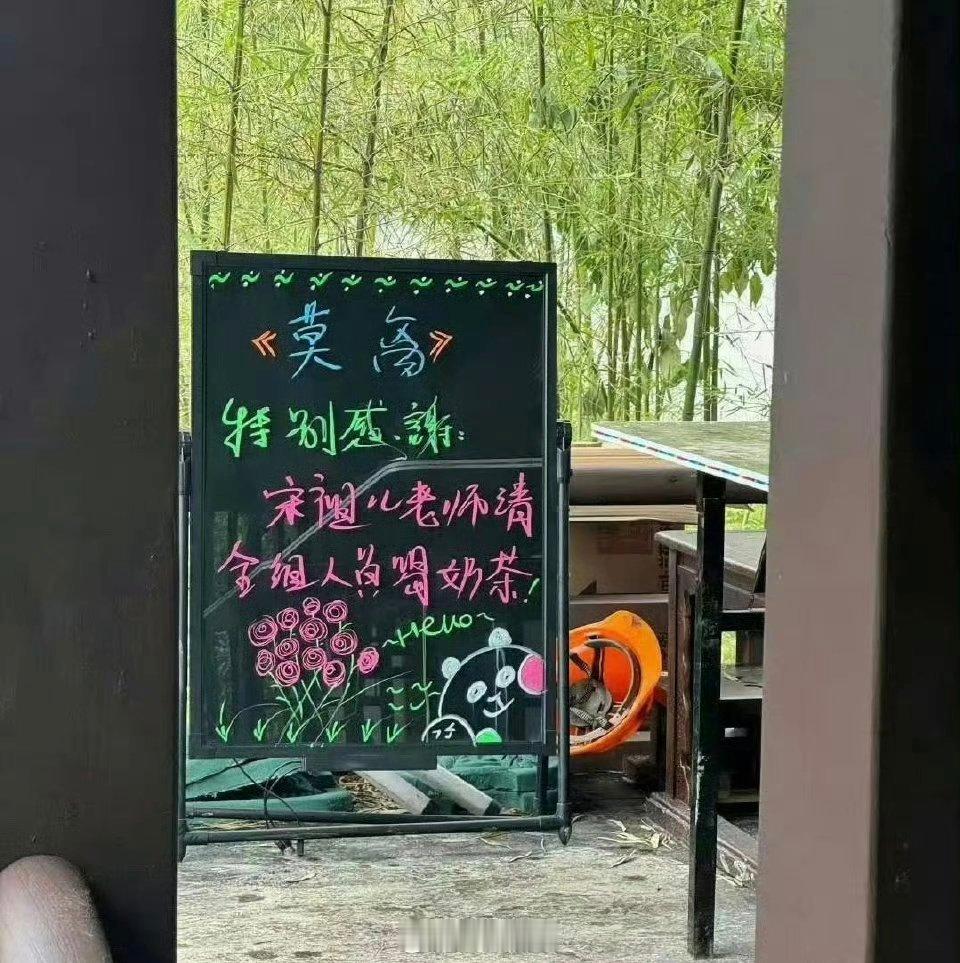 《莫离》
特别感謝:
宋祖儿老师请
全组人员喝奶茶!
~Hello~